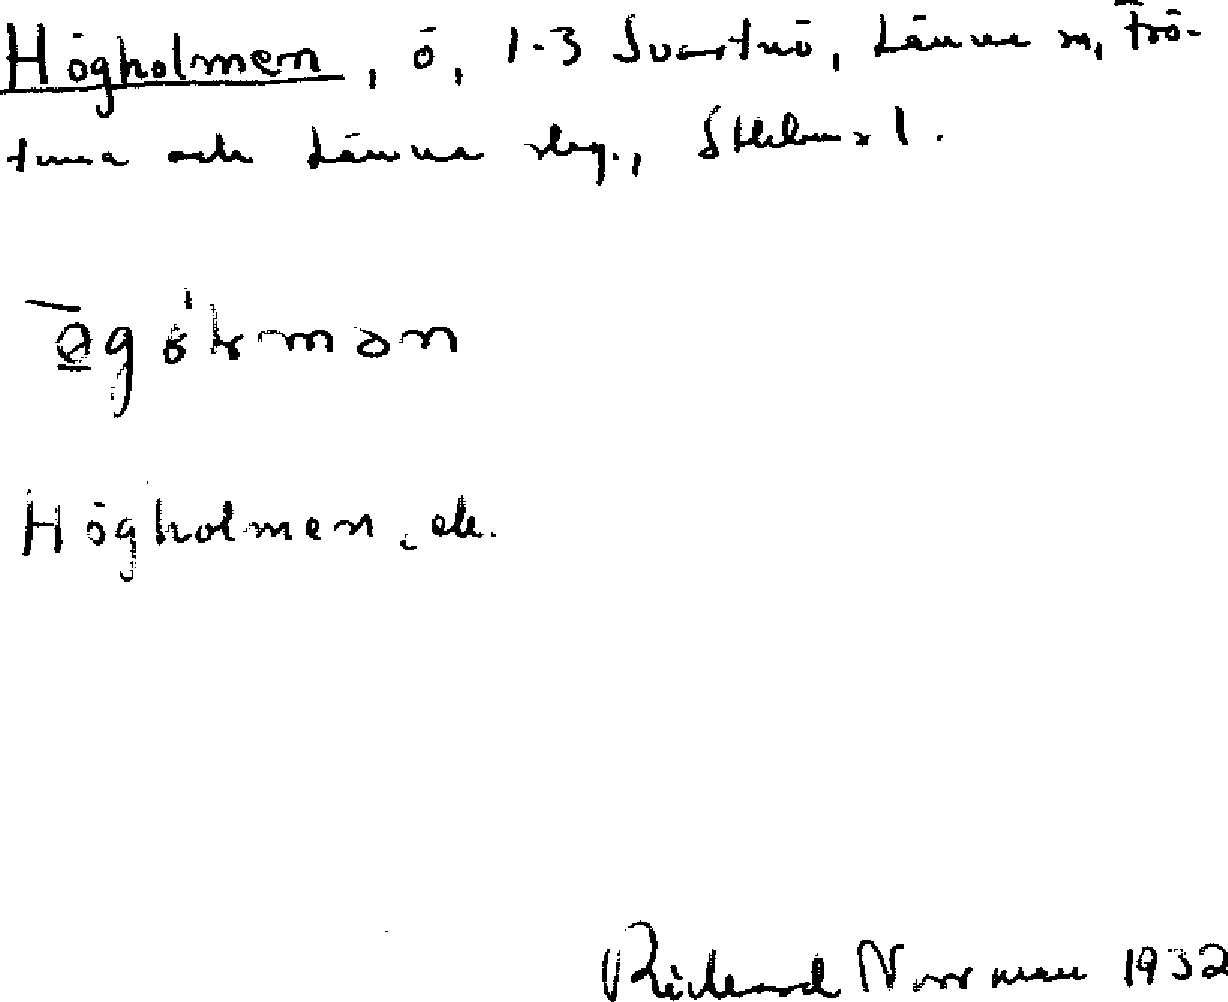 Högholmen, ö, 1-3 Svartnö, Länna sn, Frö-
tuna och Länna slg., Sthlms l.
Högholmen, ek.
Rickard Norrman 1932